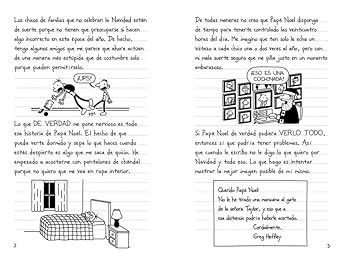 Los chicos de familias que no celebran la Navidad están
de suerte porque no tienen que preocuparse si hacen
algo incorrecto en esta época del año. De hecho,
tengo algunos amigos que me parece que ahora actúan
de una manera más estúpida que de costumbre solo
porque pueden permitírselo.
¡JUPS!
Lo que DE VERDAD me pone nervioso es toda
esa historia de Papá Noel. El hecho de que
pueda verte dormido y sepa lo que haces cuando
estás despierto es algo que me saca de quicio. He
empezado a acostarme con pantalones de chándal
porque no quiero que me vea en ropa interior.
2
De todas maneras no creo que Papá Noel disponga
de tiempo para tenerte controlado las veinticuatro
horas del día. Me imagino que tan solo le echa un
vistazo a cada chico una o dos veces al año, pero con
mi mala suerte seguro que me pilla justo en un momento
embarazoso.
¡ESO ES UNA
COCHINADA!
Si Papá Noel de verdad pudiera VERLO TODO,
entonces sí que podría tener problemas. Así
que cuando le escribo no le digo lo que quiero por
Navidad y todo eso. Lo que hago es intentar
mostrar la mejor imagen posible de mí mismo.
Querido Papá Noel:
No le he tirado una manzana al gato
de la señora Taylor, y eso que a
esa distancia podría haberle acertado.
Cordialmente,
Greg Heffley
3